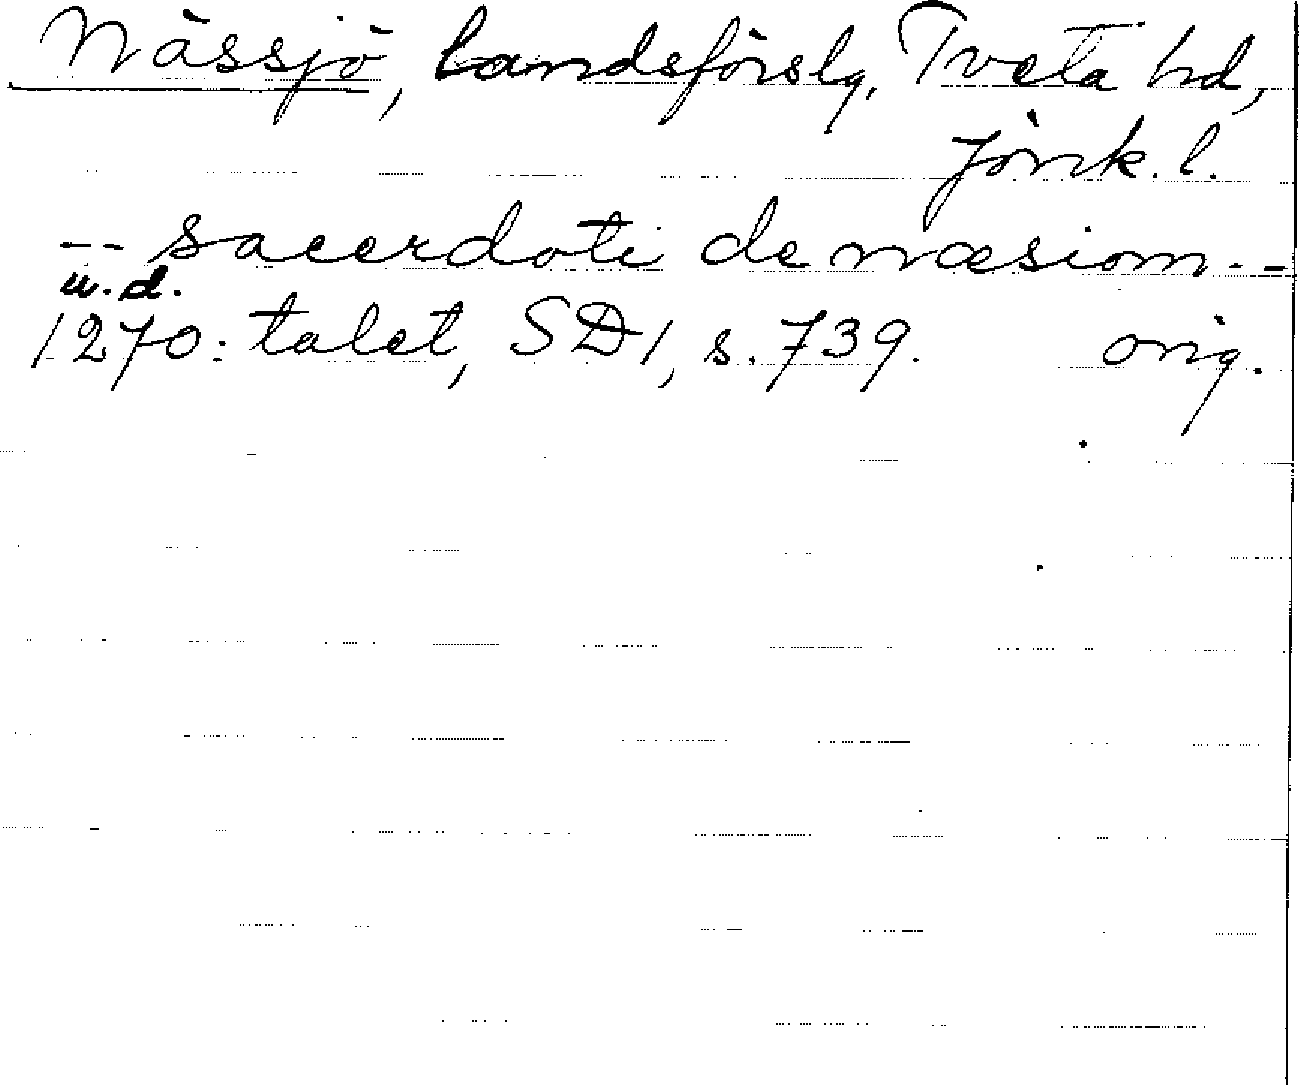 Nässjö, Landsförslg, Tveta hd,
Jönk. l.
-- sacerdoti de næsiom --
u.d.
1270: talet, SD1, s. 739. orig.